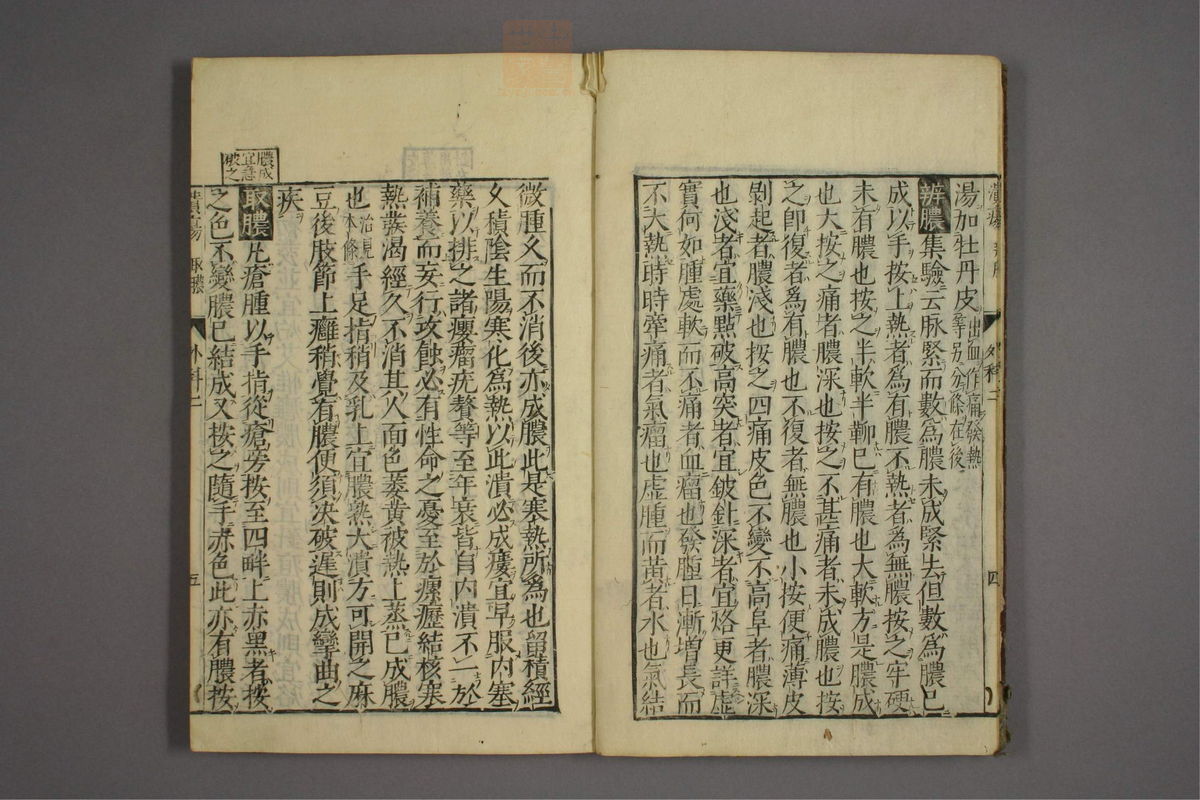 湯加牡丹皮出血作痛發熱等別分條在後
辨膿集驗云脉緊而數為膿未成緊去但數為膿已
成以手按上熱者為有膿不熱者為無膿按之牢硬
未有膿也按之半軟半鞕已有膿也大軟方是膿成
也大按之痛者膿深也按之不甚痛者未成膿也按
之即復者為有膿也不復者無膿也小按便痛薄皮
剝起者膿淺也按之四痛皮色不變不高阜者膿深
也淺者宜藥點破高突者宜鈹針深者宜烙更詳虛
實何如腫處軟而不痛者血瘤也發腫日漸増長而
不大熱時時牽痛者氣瘤也虛腫而黃者水也氣結
四
微腫久而不消後亦成膿此是寒熱所為也留積經
久積陰生陽寒化為熱以此潰必成瘻宜早服内塞
藥以排之諸癭瘤疣贅等至年衰皆自内潰不一於
補養而妄行攻蝕必有性命之憂至於瘰癧結核寒
熱發渴經久不消其人面色萎黃被熱上蒸已成膿
也治見本條手足指稍及乳上宜膿熟大潰方可開之麻
豆後肢節上癰稍覺有膿便須决破遲則成攣曲之
疾
膿成宜急破之
取膿凡瘡腫以手指從瘡旁按至四畔上赤黑者按
之色不變膿已結成又按之隨手赤色此亦有膿按
取膿 外科二 五